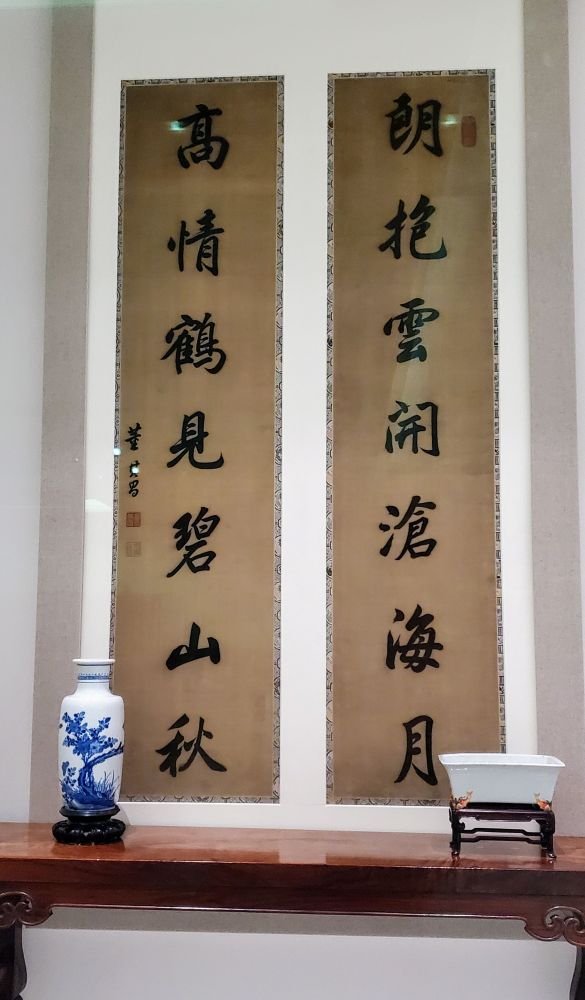 朗抱雲開滄海月
高情鶴見碧山秋
董其昌